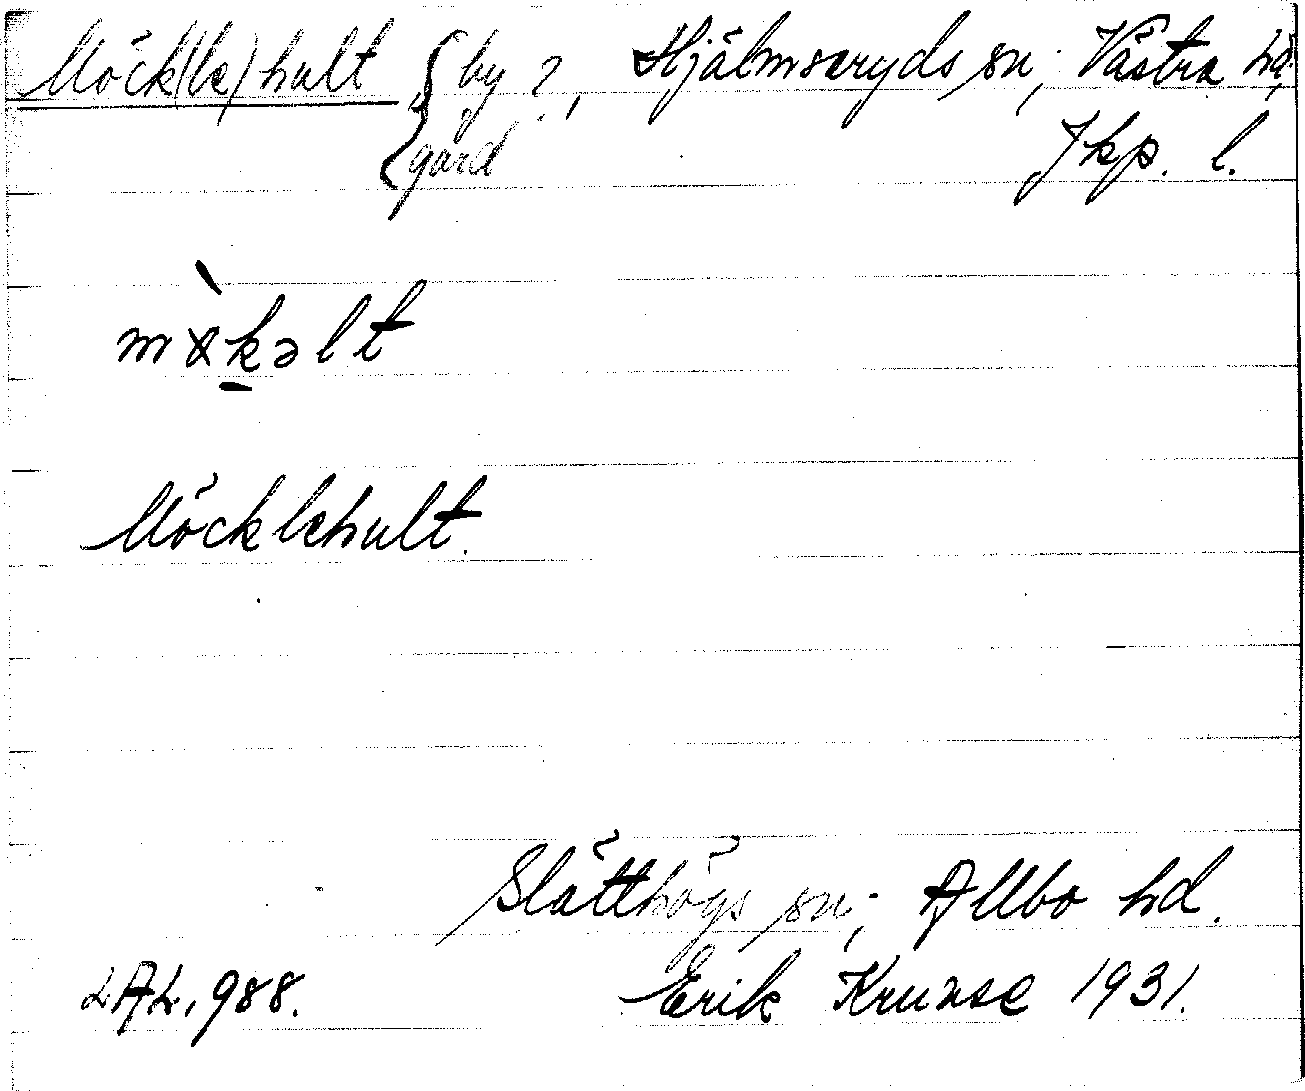 Möck(le)hult { by ?, Hjälmseryds sn; Västra hd,
gård Jkp. l.
mö̀kəlt
Möcklehult.
Slätthögs sn; Allbo hd.
LAL, 988. Erik Krunse 1931.